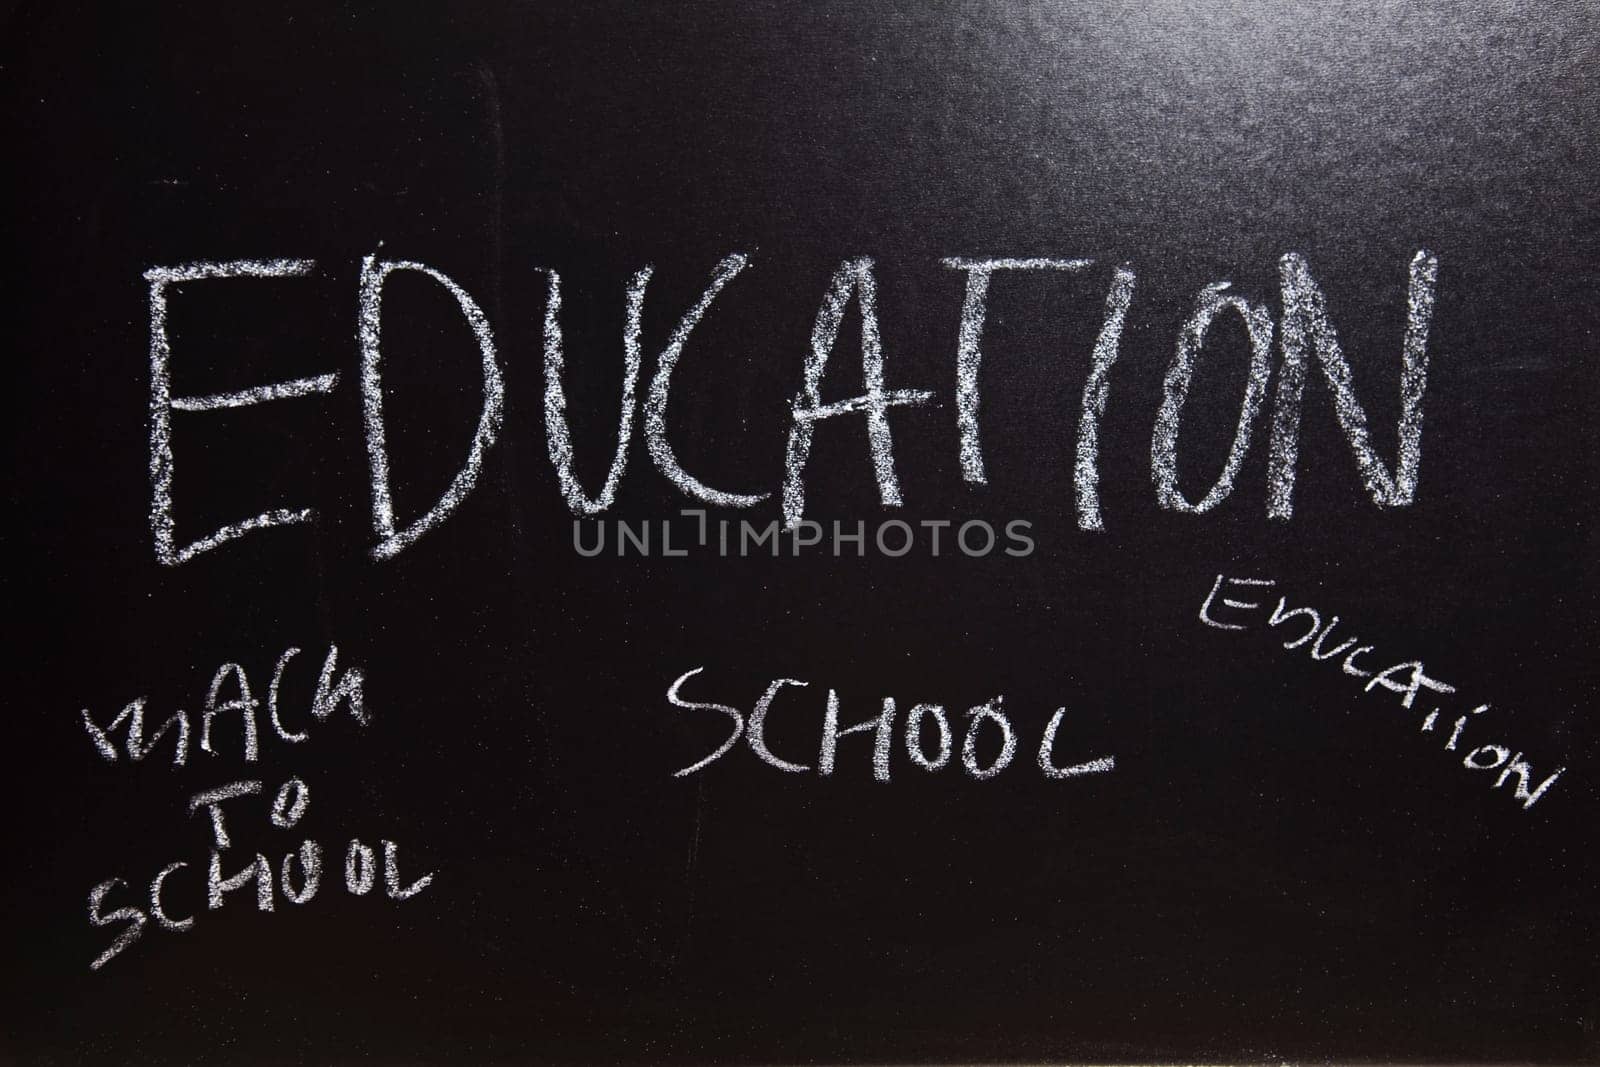 EDUCATION
UNLIMPHOTOS
EDUCATION
SCHOOL
MACH
TO
SCHOOL